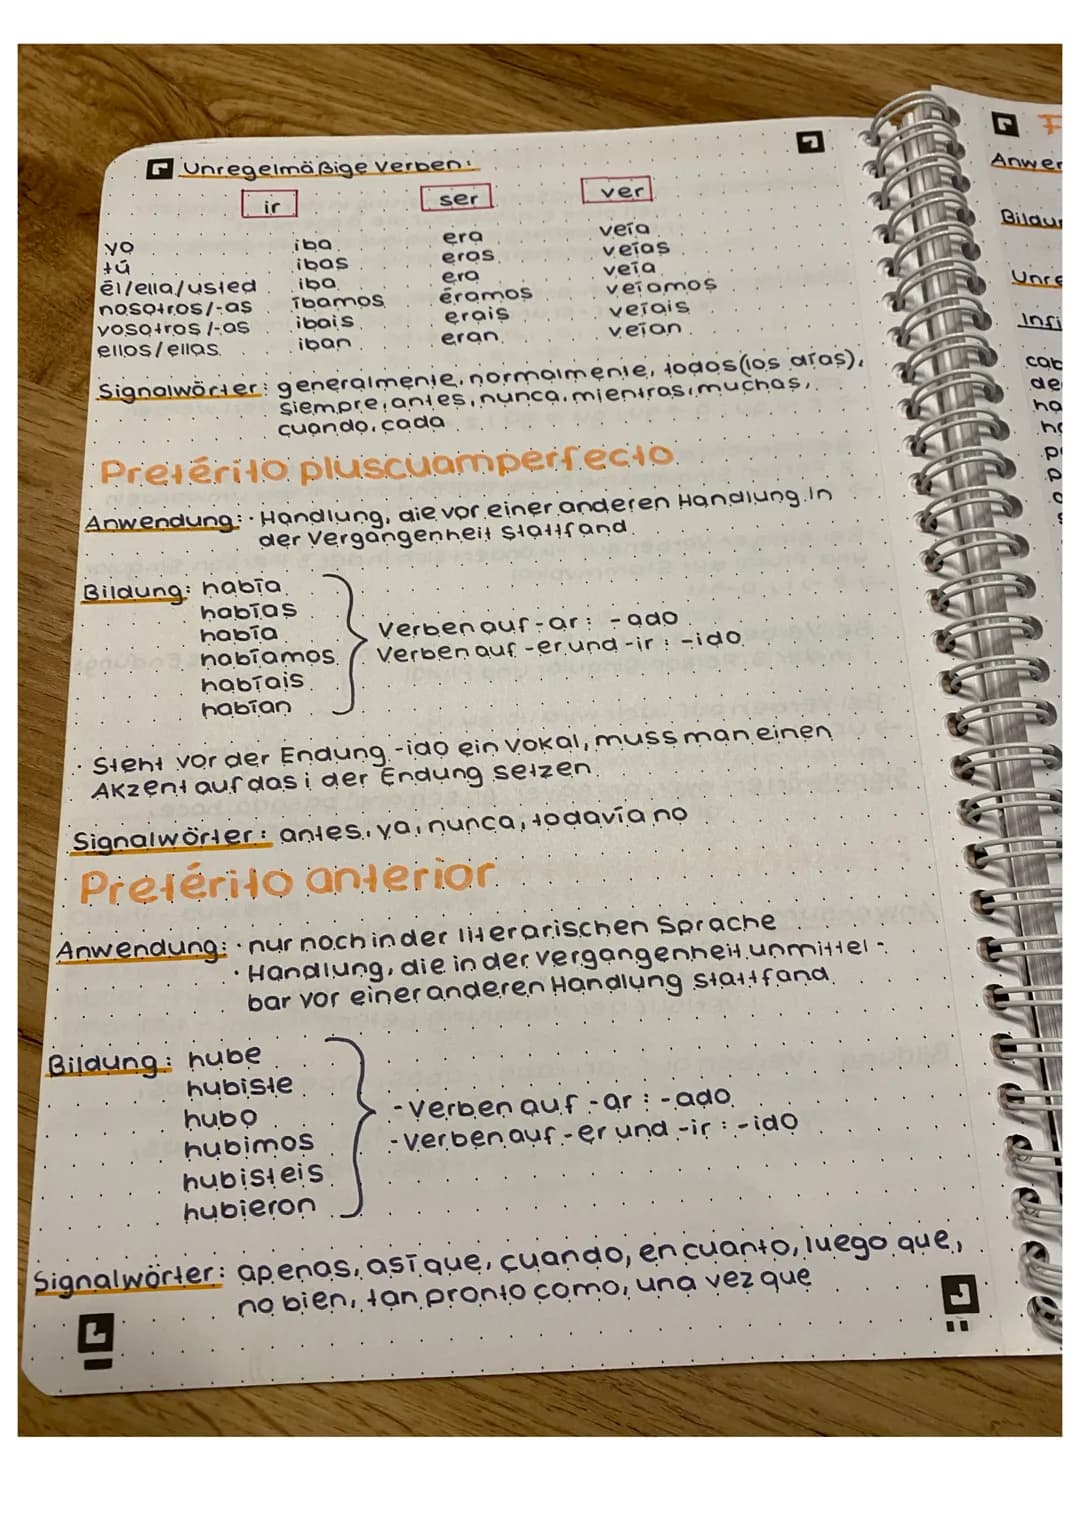 Unregelmäßige Verben:
ir ser ver
yo iba era veía
tú ibas eras veías
él/ella/usted iba era veía
nosotros/-as íbamos éramos veíamos
vosotros/-as ibais erais veíais
ellos/ellas iban eran veían
Signalwörter: generalmente, normalmente, todos (los días),
siempre, antes, nunca, mientras, muchas,
cuando, cada
Pretérito pluscuamperfecto
Anwendung: · Handlung, die vor einer anderen Handlung in
der Vergangenheit stattfand
Bildung: había
habías
había
habíamos
habíais
habían
Verben auf -ar: -ado
Verben auf -er und -ir: -ido
· Steht vor der Endung -ido ein Vokal, muss man einen
Akzent auf das i der Endung setzen
Signalwörter: antes, ya, nunca, todavía no
Pretérito anterior
Anwendung: · nur noch in der literarischen Sprache
· Handlung, die in der Vergangenheit unmittel-
bar vor einer anderen Handlung stattfand
Bildung: hube
hubiste
hubo
hubimos
hubisteis
hubieron
- Verben auf -ar: -ado
- Verben auf -er und -ir: -ido
Signalwörter: apenas, así que, cuando, en cuanto, luego que,
no bien, tan pronto como, una vez que
Anwer
Bildun
Unre
Infi
cab
de
ha